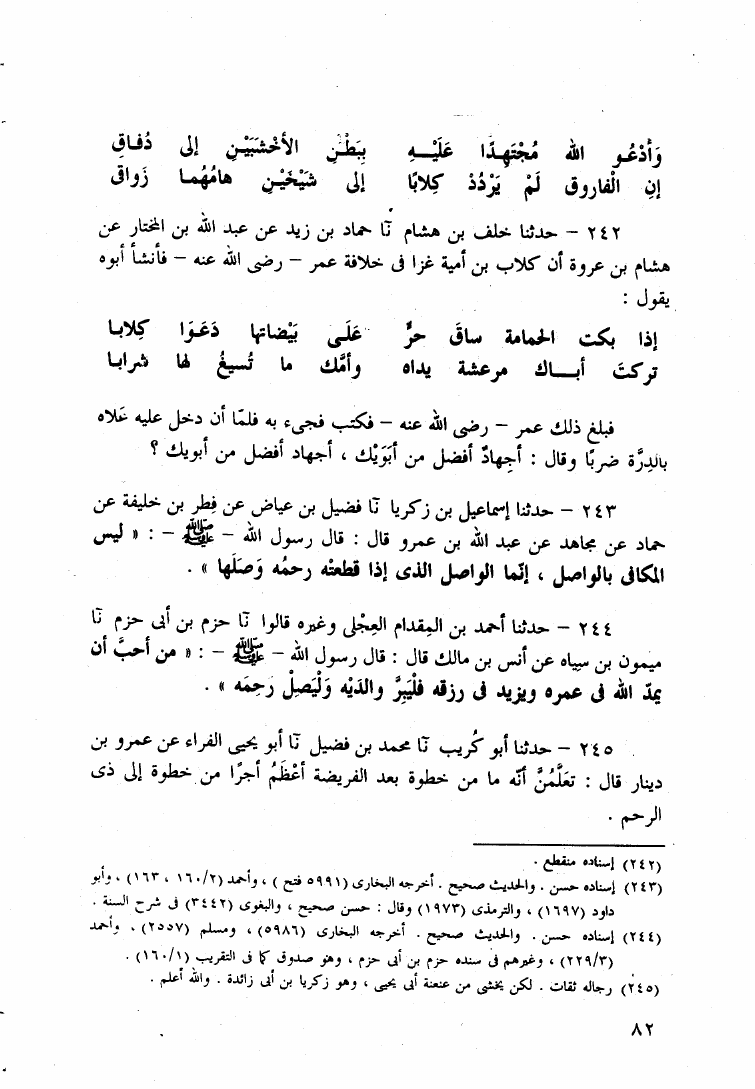 وَأدْعُو الله مُجْتَهِدًا عَلَيْهِ بِبَطْنِ الأخْشَبَيْنِ إلى دُفاقِ
إنِ الْفاروق لَمْ يَرْدُدْ كِلابًا إلى شَيْخَيْنِ هامُهُما زَواقى
٢٤٢ – حدثنا خلف بن هشام نَا حماد بن زيد عن عبد الله بن المختار عن
هشام بن عروة أن كلاب بن أمية غزا فى خلافة عمر – رضى الله عنه – فأنشأ أبوه
يقول :
إذا بكت الحمامة ساقَ حرٍّ عَلَى بَيْضاتها دَعَوَا كِلابا
تركتَ أباك مرعشة يداه وأمَّك ما تُسيغُ لها شرابا
فبلغ ذلك عمر – رضى الله عنه – فكتب فجىء به فلمّا أن دخل عليه عَلاه
بالدِرَّة ضربًا وقال : أجِهادٌ أفضل من أبَوَيْك ، أجهاد أفضل من أبويك ؟
٢٤٣ – حدثنا إسماعيل بن زكريا نَا فضيل بن عياض عن فِطر بن خليفة عن
حماد عن مجاهد عن عبد الله بن عمرو قال : قال رسول الله – ﷺ – : « ليس
المكافى بالواصل ، إنّما الواصل الذى إذا قطعته رحمُه وَصَلَها » .
٢٤٤ – حدثنا أحمد بن المِقدام العِجْلى وغيره قالوا نَا حزم بن أبى حزم نَا
ميمون بن سياه عن أنس بن مالك قال : قال رسول الله – ﷺ – : « من أحبَّ أن
يمدّ الله فى عمره ويزيد فى رزقه فلْيَبِرَّ والدَيْه وَلْيَصِلْ رَحِمَه » .
٢٤٥ – حدثنا أبو كُريب نَا محمد بن فضيل نَا أبو يحيى الفراء عن عمرو بن
دينار قال : تعَلَّمُنَّ أنّه ما من خطوة بعد الفريضة أعْظَمُ أجرًا من خطوة إلى ذى
الرحم .
(٢٤٢) إسناده منقطع .
(٢٤٣) إسناده حسن . والحديث صحيح . أخرجه البخارى (٥٩٩١ فتح ) ، وأحمد (١٦٠/٢ ، ١٦٣) ، وأبو
داود (١٦٩٧) ، والترمذى (١٩٧٣) وقال : حسن صحيح ، والبغوى (٣٤٤٢) فى شرح السنة .
(٢٤٤) إسناده حسن . والحديث صحيح . أخرجه البخارى (٥٩٨٦) ، ومسلم (٢٥٥٧) ، وأحمد
(٢٢٩/٣) ، وغيرهم فى سنده حزم بن أبى حزم ، وهو صدوق كما فى التقريب (١٦٠/١) .
(٢٤٥) رجاله ثقات . لكن يخشى من عنعنة أبى يحيى ، وهو زكريا بن أبى زائدة . والله أعلم .
٨٢